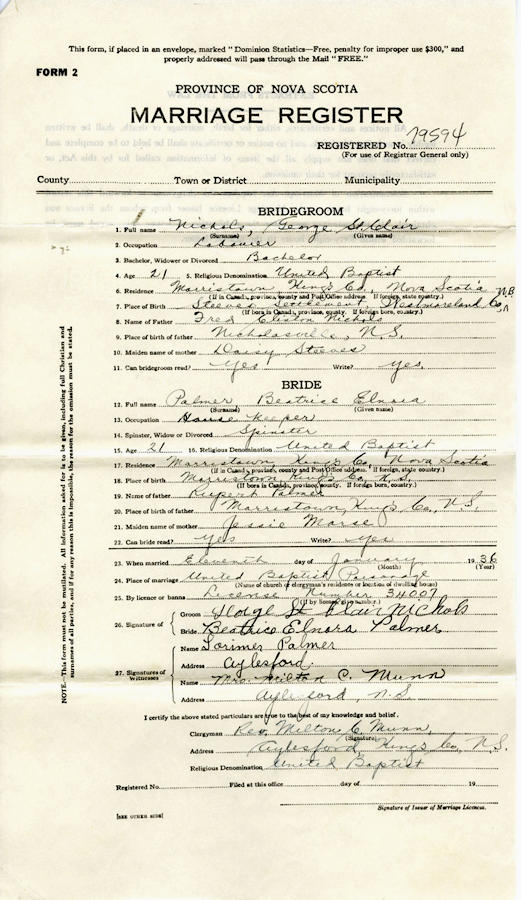 This form, if placed in an envelope, marked "Dominion Statistics—Free, penalty for improper use $300," and
properly addressed will pass through the Mail "FREE."
FORM 2
PROVINCE OF NOVA SCOTIA
MARRIAGE REGISTER
REGISTERED No. 79594
(For use of Registrar General only)
County Town or District Municipality
BRIDEGROOM
1. Full name Nichols, George St. Clair
(Surname) (Given name)
2. Occupation Labourer
3. Bachelor, Widower or Divorced Bachelor
4. Age 21 5. Religious Denomination United Baptist
6. Residence Morristown Kings Co., Nova Scotia
(If in Canada, province, county and Post Office address. If foreign, state country.)
7. Place of Birth Steeves Settlement, Westmoreland Co., N.B.
(If born in Canada, province, county. If foreign born, country.)
8. Name of Father Fred Nichols
9. Place of birth of father Nicholasville, N.S.
10. Maiden name of mother Daisy Steeves
11. Can bridegroom read? Yes Write? Yes.
BRIDE
12. Full name Palmer Beatrice Elnora
(Surname) (Given name)
13. Occupation House Keeper
14. Spinster, Widow or Divorced Spinster
15. Age 21 16. Religious Denomination United Baptist
17. Residence Morristown Kings Co., Nova Scotia
(If in Canada, province, county and Post Office address. If foreign, state country.)
18. Place of Birth Morristown, Kings Co., N.S.
(If born in Canada, province, county. If foreign born, country.)
19. Name of father Rupert Palmer
20. Place of birth of father Morristown, Kings Co., N.S.
21. Maiden name of mother Jessie Morse
22. Can bride read? Yes Write? Yes
23. When married Eleventh day of January 1936
(Month) (Year)
24. Place of marriage United Baptist Parsonage
(Name of church or clergyman's residence or location of dwelling house)
25. By licence or banns License Number 34007
(If by licence, give number.)
26. Signature of
Groom George St. Clair Nichols
Bride Beatrice Elnora Palmer
27. Signatures of Witnesses
Name Lorimer Palmer
Address Aylesford.
Name Mrs. Milton C. Munn
Address Aylesford, N.S.
I certify the above stated particulars are true to the best of my knowledge and belief.
Clergyman Rev. Milton C. Munn,
(Signature)
Address Aylesford, Kings Co., N.S.
Religious Denomination United Baptist
Registered No. Filed at this office day of 19
Signature of Issuer of Marriage Licences.
[SEE OTHER SIDE]
NOTE.—This form must not be mutilated. All information asked for is to be given, including full Christian and
surnames of all parties, and if for any reason this is impossible, the reason for the omission must be stated.